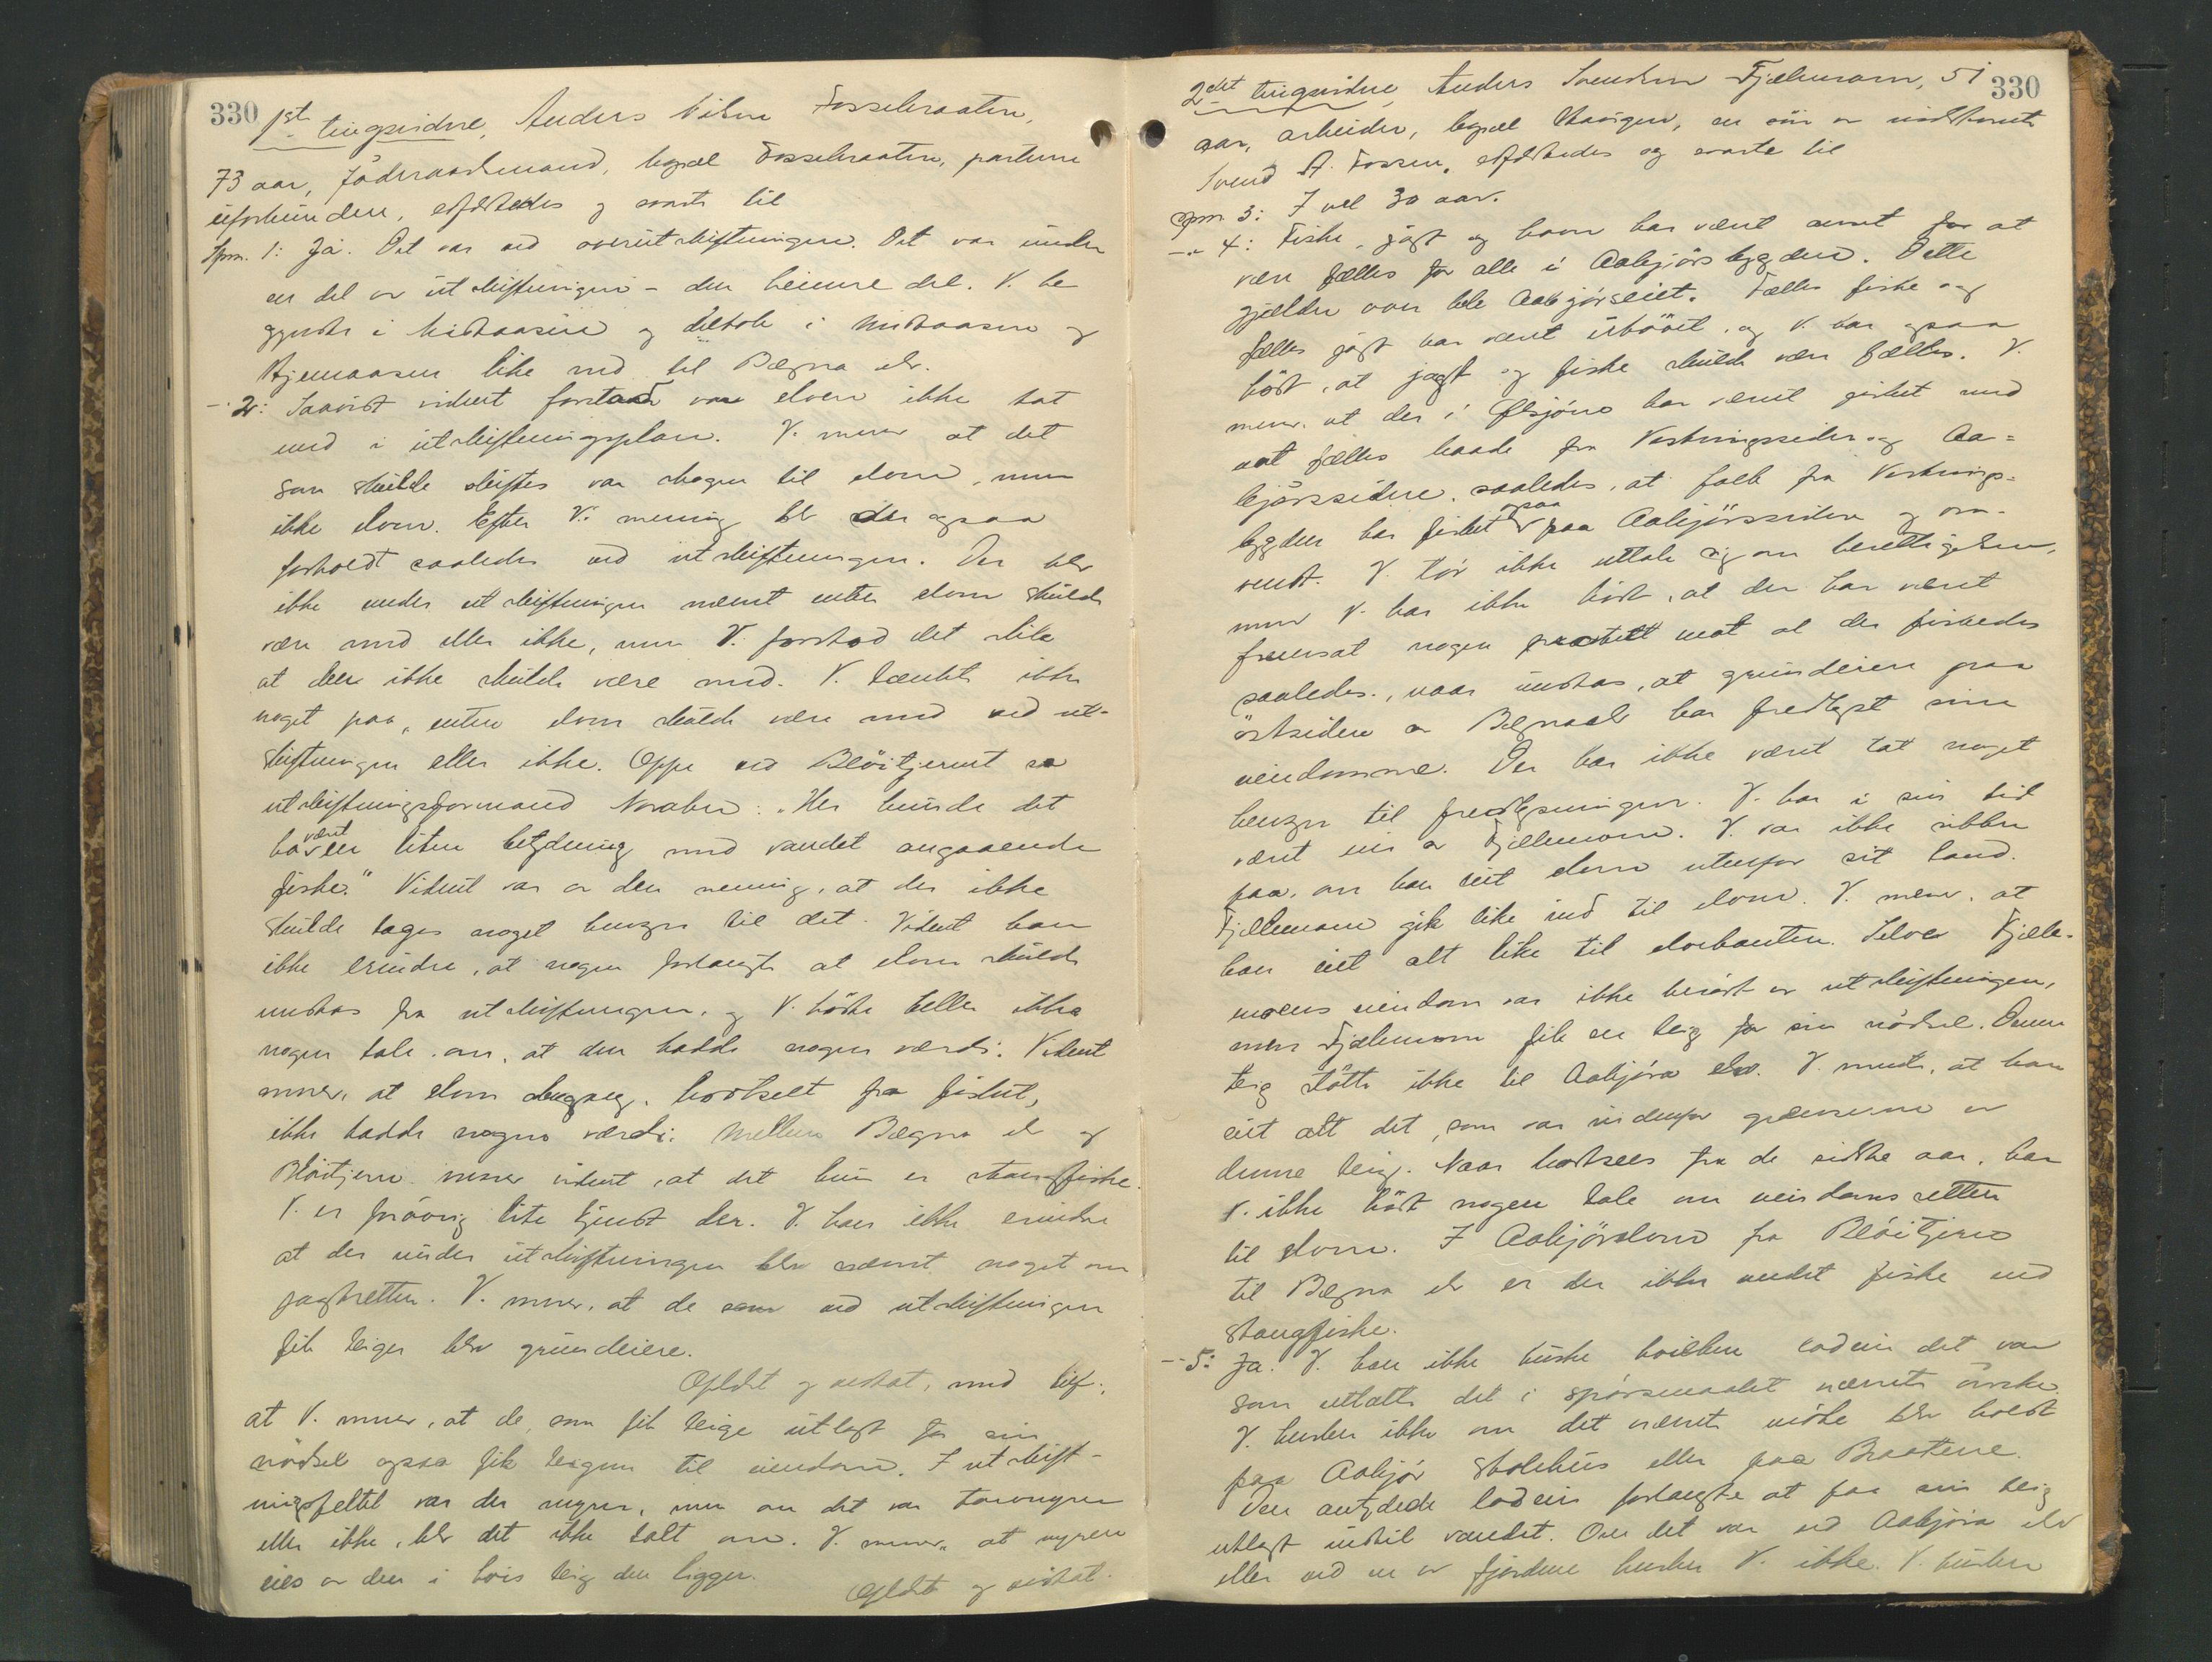 330
1st tingsvidne, Anders Nilsen Fossebraaten,
73 aar, föderaadsmand, bopæl Fossebraaten, parterne
uforbunden, edfæstedes og svarte til
Spm. 1: Ja. Det var ved overutskiftningen. Det var under
en del av utskiftningen - den heimre del. V. be
gyndte i Midtaasen og deltok i Midtaasen og
Hjemaasen like ned til Bægna elv.
-"- 2: Saavidt vidnet forstod var elven ikke tat
med i utskiftningsplan. V. mener at det
som skulde skiftes var skogen til elven, men
ikke elven. Efter V.s mening blev der ogsaa
forholdt saaledes ved utskiftningen. Der blev
ikke under utskiftningen nævnt enten elven skulde
være med eller ikke, men V. forstod det slik
at den ikke skulde være med. V. tænkte ikke
noget paa, enten elven skulde være med ved ut-
skiftningen eller ikke. Oppe ved Blöitjernet sa
utskiftningsformand Noraker: "Her kunde det
ha været en liten betydning med vandet angaaende
fiske." Vidnet var av den mening, at der ikke
skulde tages noget hensyn til det. Vidnet kan
ikke erindre, at nogen forlangte at elven skulde
undtas fra utskiftningen, og V. hörte heller ikke
nogen tale om, at den hadde nogen værdi. Vidnet
mener, at elven dengang, bortset fra fisket,
ikke hadde nogen værdi. Mellem Bægna elv og
Blöitjern mener vidnet, at det kun er stangfiske.
V. er forövrig lite kjendt der. V. kan ikke erindre
at der under utskiftningen blev nævnt noget om
jagtretten. V. mener, at de som ved utskiftningen
fik teiger blev grundeiere.
Oplæst og vedtat, med tilf.,
at V. mener, at de, som fik teige utlagt for sin
nödsel ogsaa fik teigen til eiendom. I utskift-
ningsfeltet var der myrer, men om det var torvmyrer
eller ikke, blev det ikke talt om. V. mener, at myren
eies av den i hvis teig den ligger.
Oplæst og vedtat.
330
2det tingsvidne, Anders Svendsen Fjælmoen, 51
aar, arbeider, bopæl Skavigen, en sön av medstevnte
Svend A. Fossen, edfæstedes og svarte til
Spm 3: I vel 30 aar.
-"- 4: Fiske, jagt og havn har været anset for at
være fælles for alle i Aabjörsbygden. Dette
gjælder over hele Aabjörseiet. Fælles fiske og
fælles jagt har været utövet, og V. har ogsaa
hört, at jagt og fiske skulde være fælles. V.
mener, at der i Ölsjöen har været fisket med
not fælles baade fra Vestringssiden og Aa=
björssiden, saaledes, at folk fra Vestrings=
bygden har fisket ogsaa paa Aabjörssiden og om-
vendt. V. tör ikke uttale sig om berettigelsen,
men V. har ikke hört, at der har været
fremsat nogen protest mot at der fiskedes
saaledes, naar undtas, at grundeieren paa
östsiden av Bægnaelv har fredlyst sine
eiendomme. Der har ikke været tat noget
hensyn til fredlysningen. V. har i sin tid
været eier av Fjællemoen. V. var ikke sikker
paa, om han eiet elven utenfor sit land.
Fjællemoen gik like ned til elven. V. mener, at
han eiet alt like til elvekanten. Selve Fjæle-
moens eiendom var ikke berört av utskiftningen,
men Fjælemoen fik en teig for sin nödsel. Denne
teig stötte ikke til Aabjöra elv. V. mente, at han
eiet alt det, som var indenfor grænserne av
denne teig. Naar bortsees fra de sidste aar, har
V. ikke hört nogen tale om eiendomsretten
til elven. I Aabjörselven fra Blöitjern
til Bægna elv er der ikke andet fiske end
stangfiske.
-"- 5: Ja. V. kan ikke huske hvilken lodeier det var
som uttalte det i spörsmaalet nævnte önske.
V. husker ikke om det nævnte möte blev holdt
paa Aabjör skolehus eller paa Braatene.
Den antydede lodeier forlangte at faa sin teig
utlagt indtil vandet. Om det var ved Aabjöra elv
eller ved en av fjordene husker V. ikke. V. husker